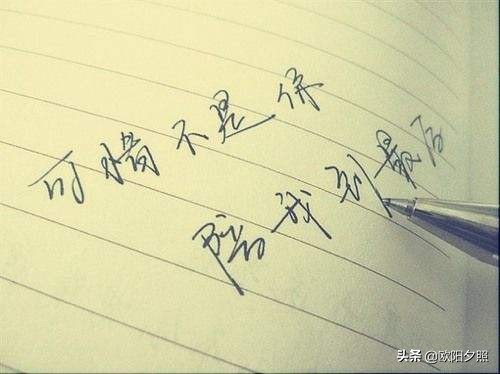 可惜不是你
陪我到最后
头条 @欧阳夕照